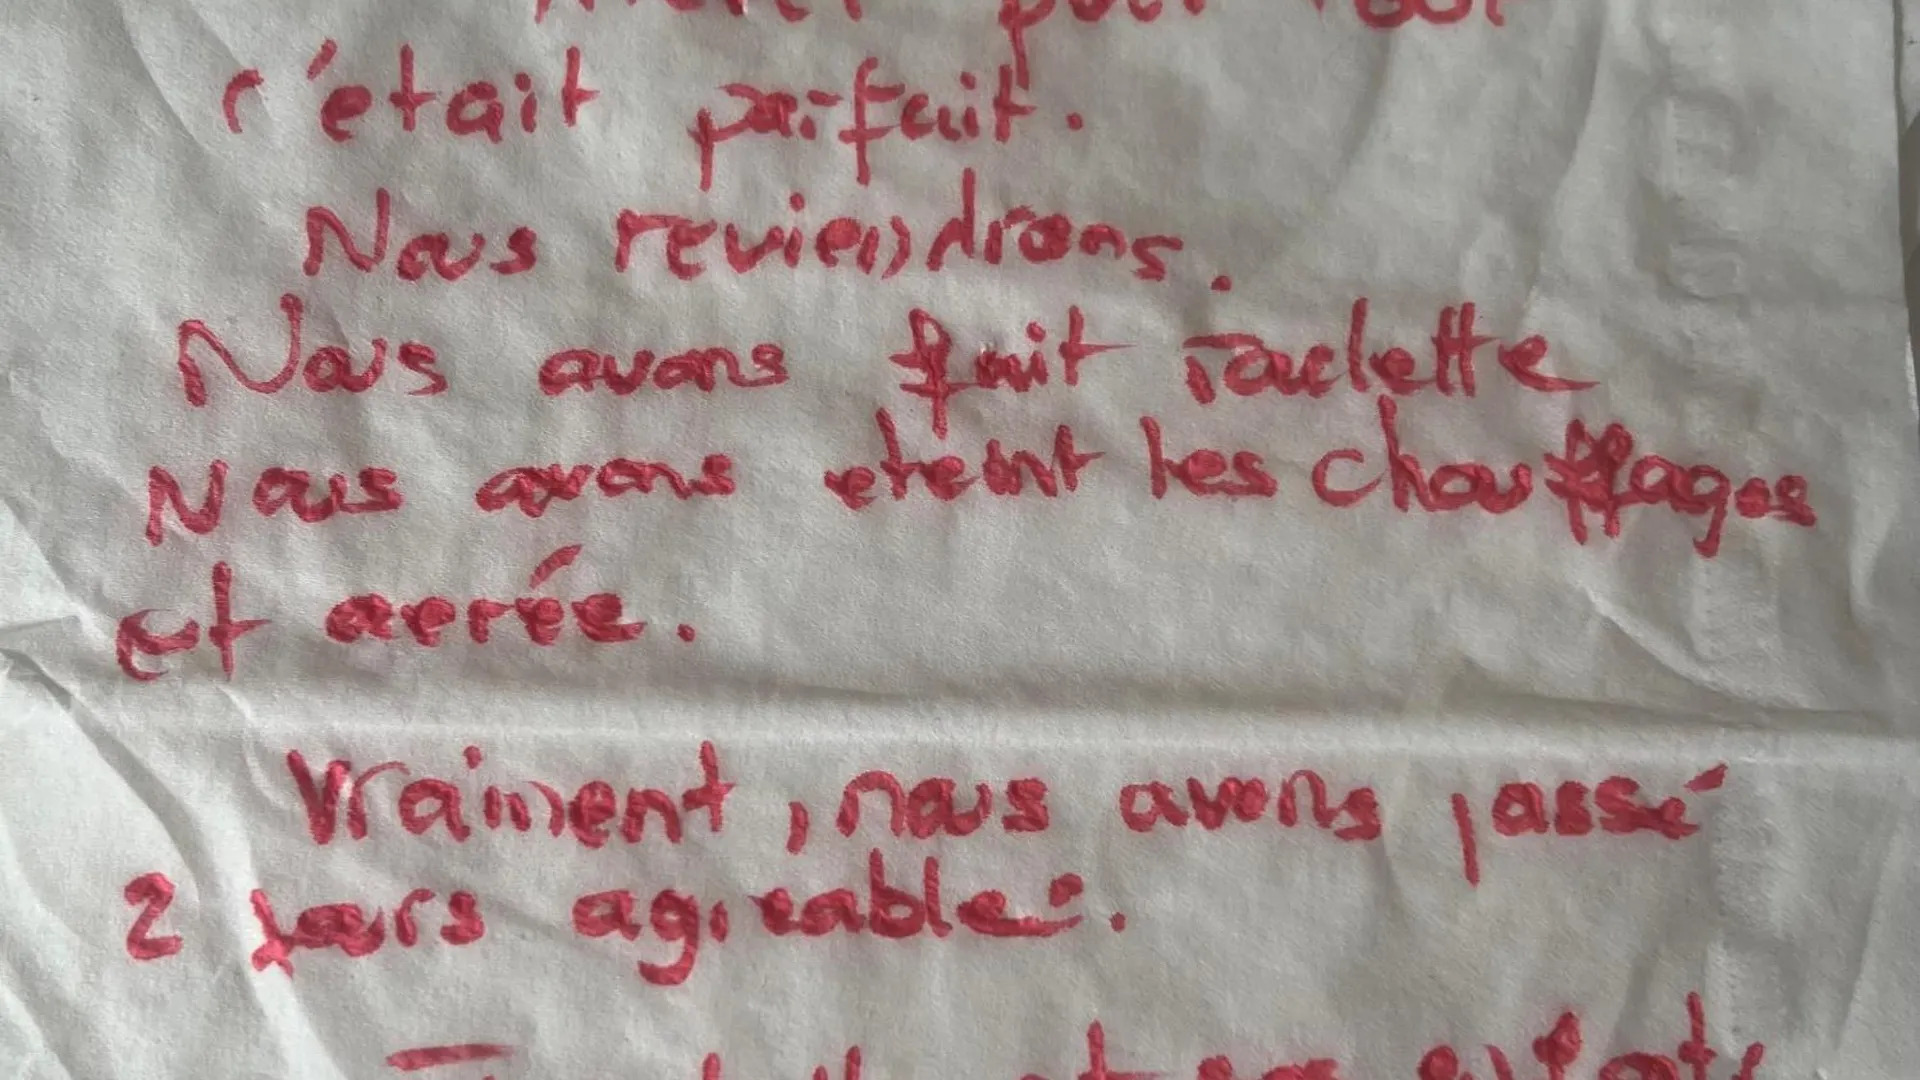 pour tout
c'était parfait.
Nous reviendrons.
Nous avons fait raclette
Nous avons eteint les chauffages
et aerée.
Vraiment, nous avons passé
2 jours agréables.